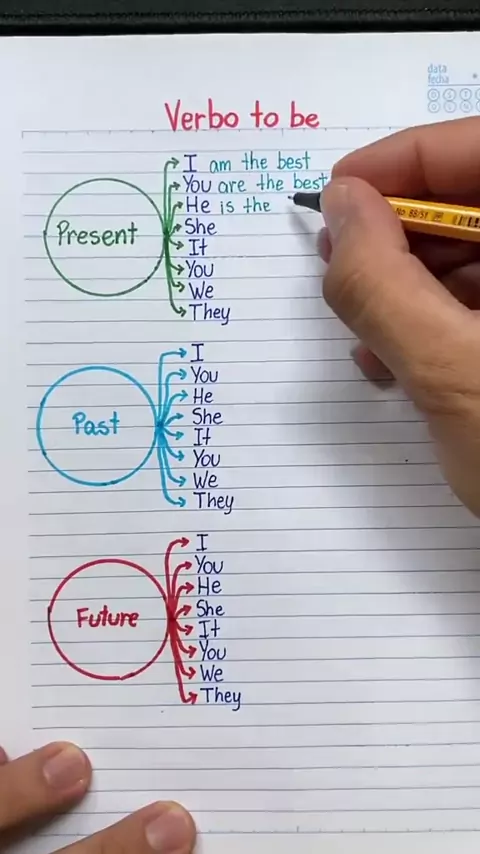 data
fecha
Verbo to be
Present
I am the best
You are the best
He is the
She
It
You
We
They
Past
I
You
He
She
It
You
We
They
Future
I
You
He
She
It
You
We
They
No 88/51